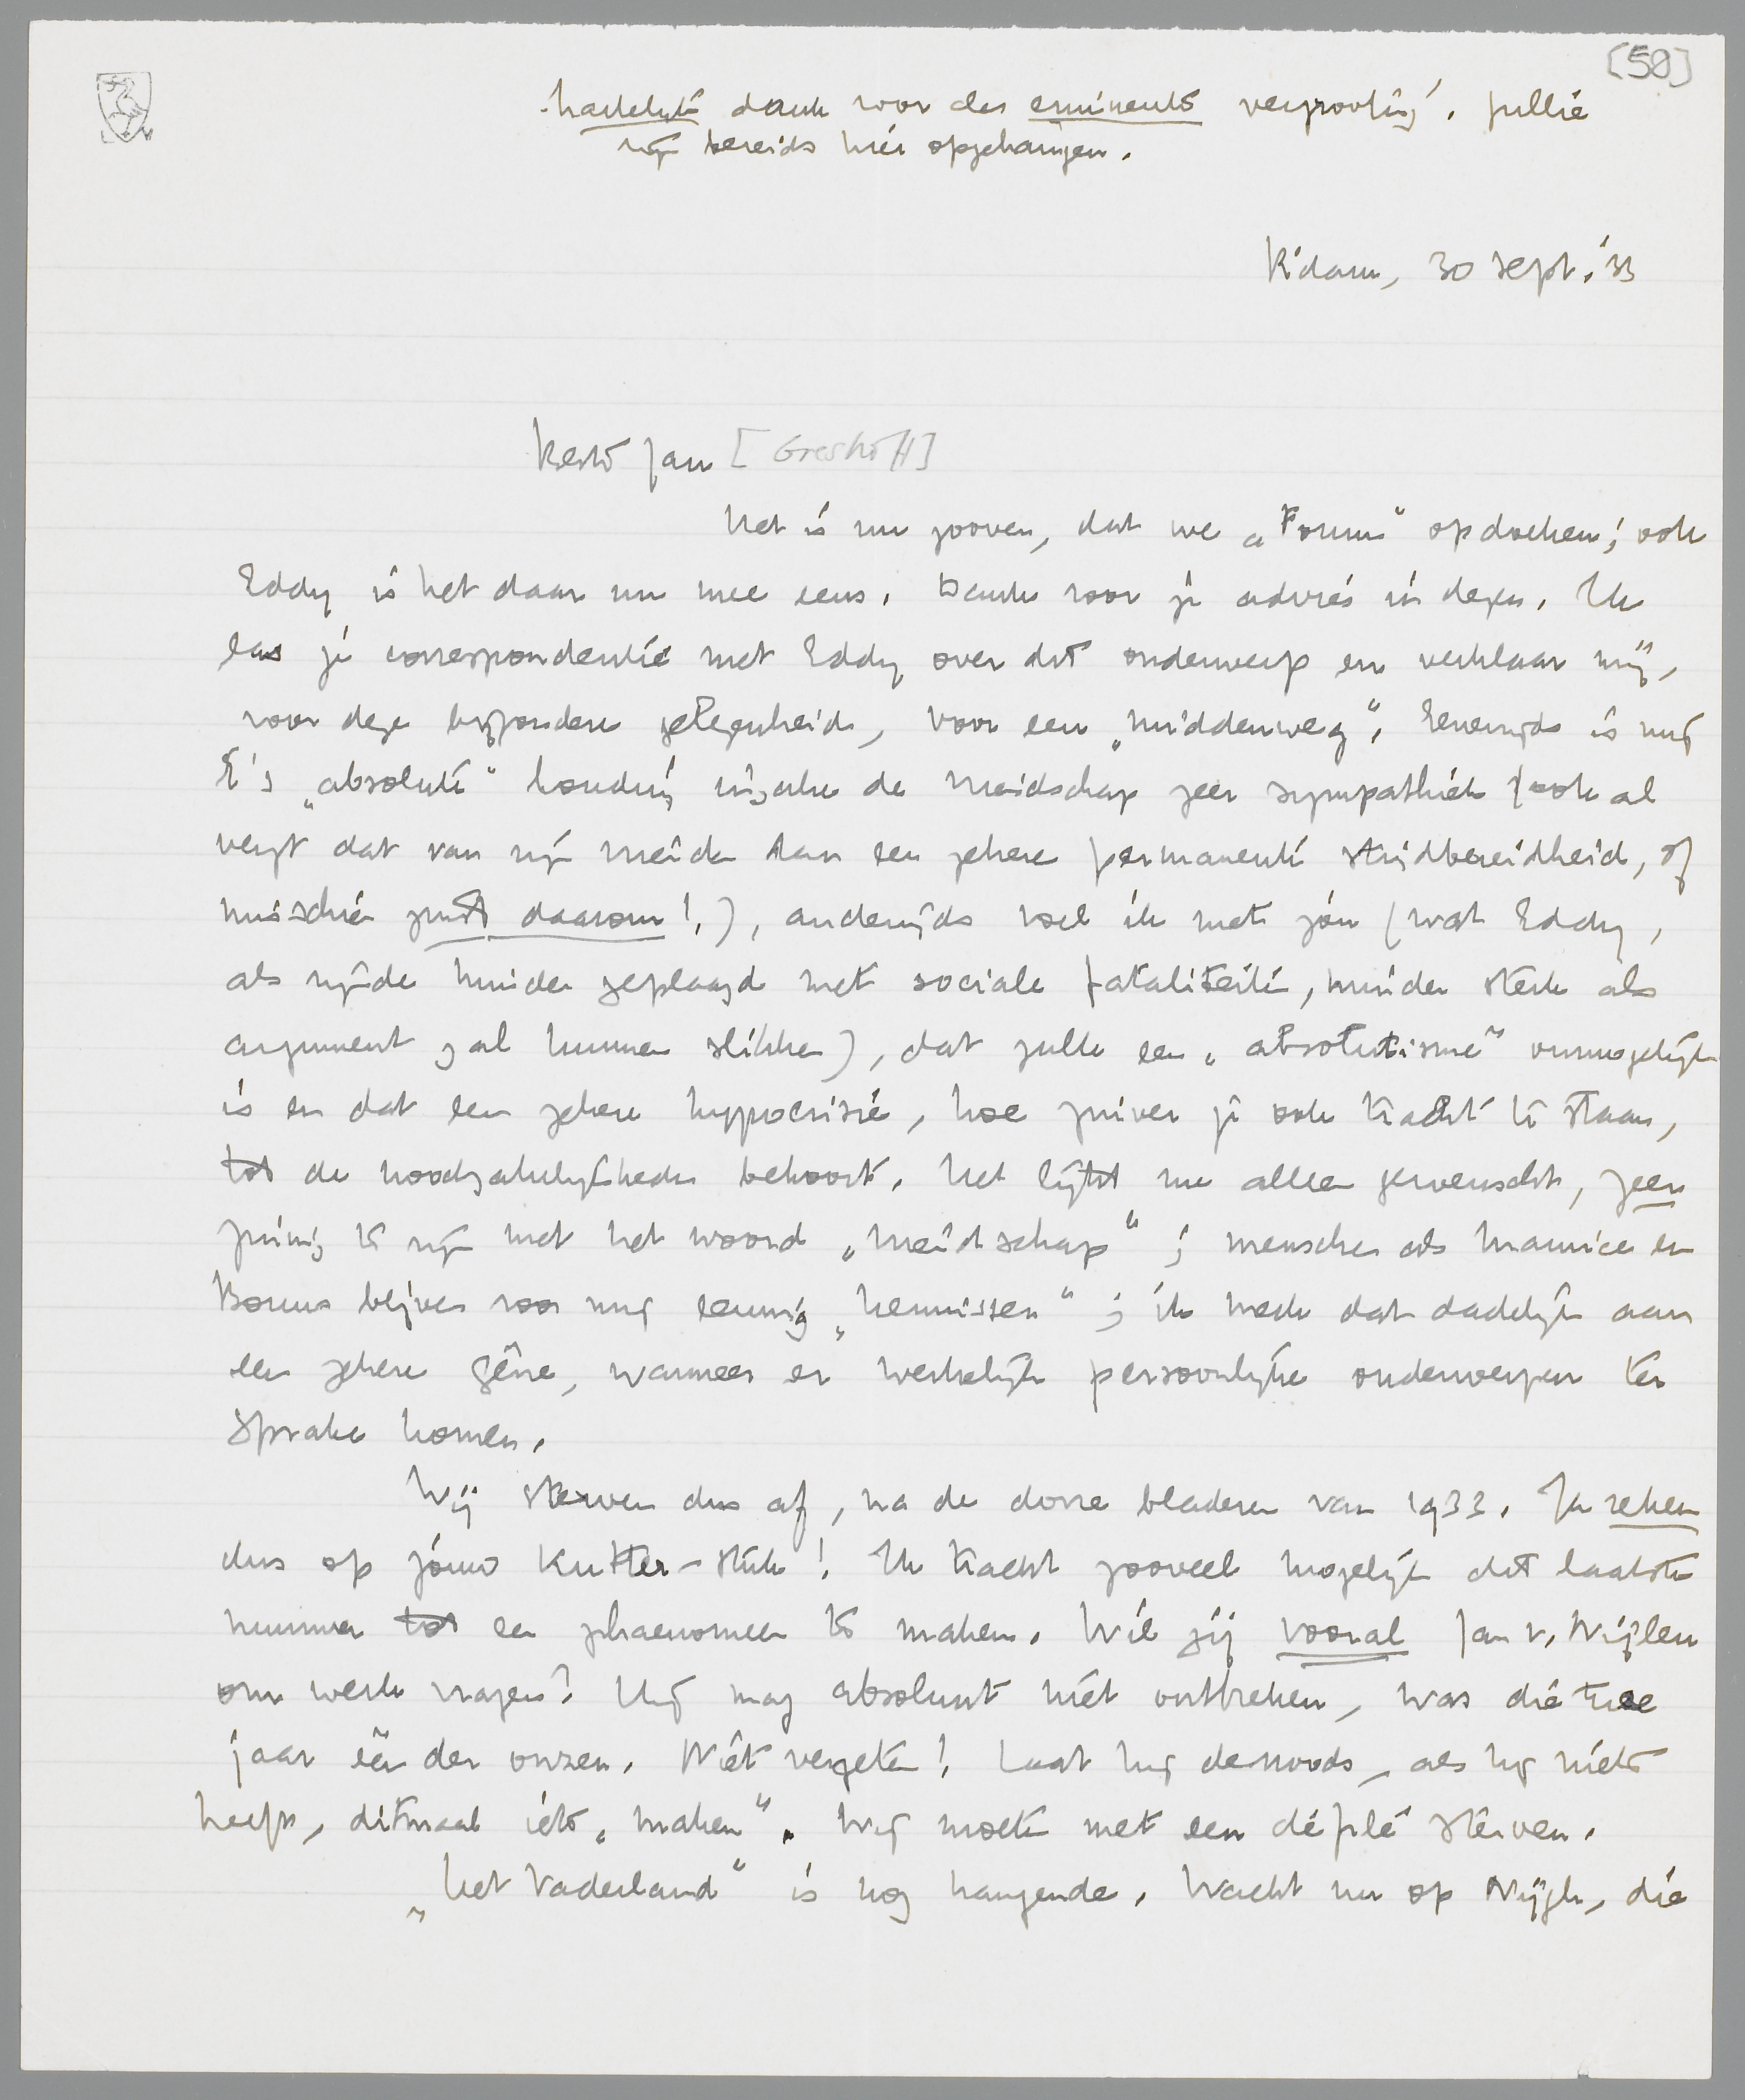 [50]
hartelijk dank voor de eminente vergrooting. Jullie
zijn bereids hier opgehangen.
R'dam, 30 Sept. '33
Beste Jan [Greshoff]
Het is nu zoover, dat we „Forum" opdoeken; ook
Eddy is het daar nu mee eens. Dank voor je advies in dezen. Ik
las je correspondentie met Eddy over dit onderwerp en verklaar mij,
voor deze bijzondere gelegenheid, voor een „middenweg". Eenerzijds is mij
E's „absolute" houding inzake de vriendschap zeer sympathiek (ook al
vergt dat van zijn vrienden dan een zekere permanente strijdbereidheid, of
misschien juist daarom!), anderzijds voel ik met jou (wat Eddy,
als zijnde minder geplaagd met sociale fataliteiten, minder sterk als
argument zal kunnen slikken), dat zulk een „absolutisme" onmogelijk
is en dat een zekere hypocrisie, hoe zuiver je ook tracht te staan,
tot de noodzakelijkheden behoort. Het lijkt me alleen gewenscht, zeer
zuinig te zijn met het woord „vriendschap"; menschen als Maurice en
Bouws blijven voor mij eeuwig „kennissen"; ik merk dat dadelijk aan
een zekere gêne, wanneer er werkelijk persoonlijke onderwerpen ter
sprake komen.
Wij sterven dus af, na de dorre bladeren van 1933. Ik reken
dus op jouw Kutter-stuk! Ik tracht zooveel mogelijk dit laatste
nummer tot een phaenomeen te maken. Wil jij vooral Jan v. Nijlen
om werk vragen? Hij mag absoluut niet ontbreken, was die twee
jaar één der onzen. Niet vergeten! Laat hij desnoods, als hij niets
heeft, ditmaal iets „maken". Wij moeten met een défilé sterven.
„Het Vaderland" is nog hangende. Wacht nu op Nijgh, die